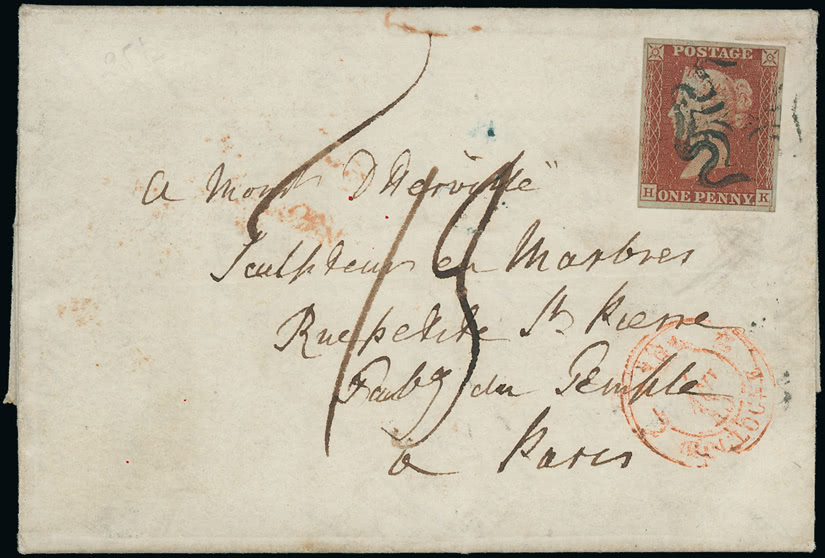 POSTAGE
H ONE PENNY K
a Mons D'Herville
Sculpteur en Marbres
Rue petite St Pierre
Faubg du Temple
à Paris
15